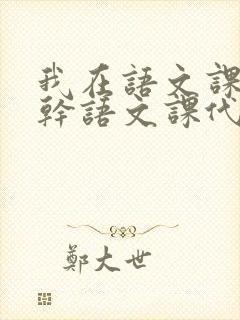 我在語文課
幹語文課代
鄭大世